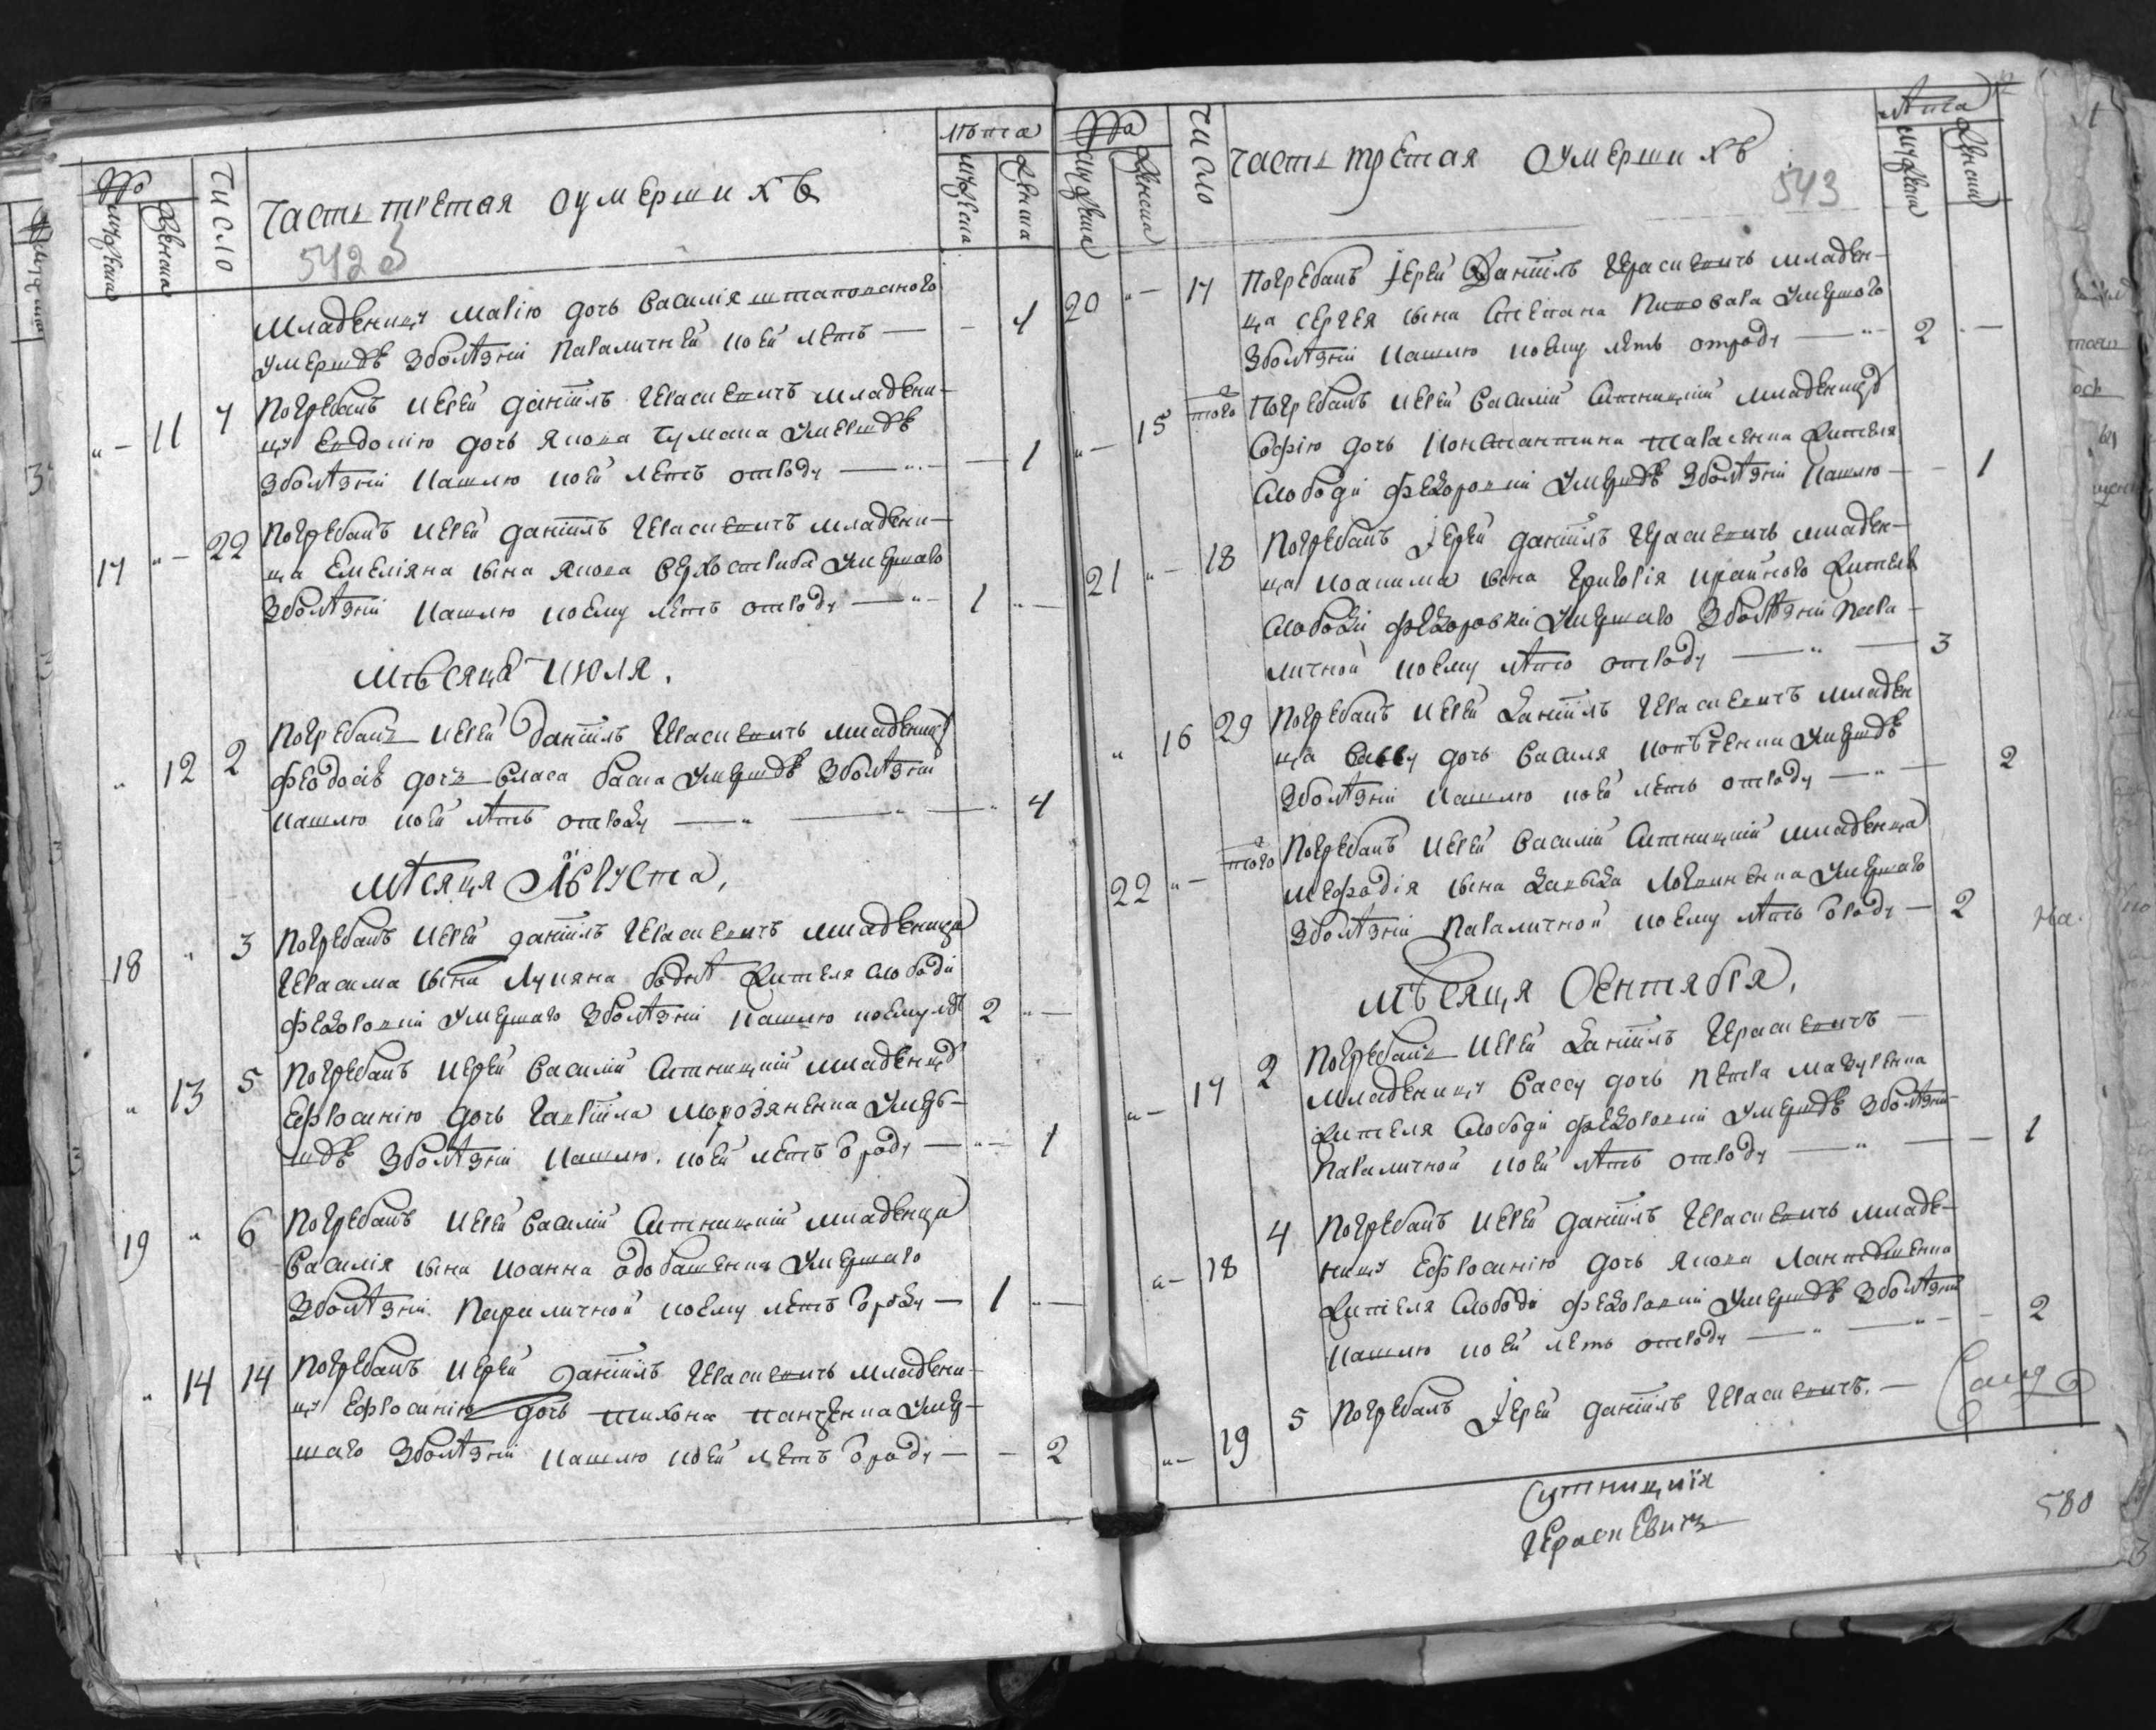 №
мужеска
женска
число
часть третая оумершихъ
542 об
лѣта
мужеска
женска
младеницу Марію дочь Василія
умершδѣ зболѣзни параличней коей летъ — - 4
„ — 11 7 Погребалъ иерей Даніилъ Герасиевичъ младени-
цу Евдокію дочь Якова Чумака умершδѣ
зболѣзни кашлю коей летъ отроду — „ — 1
17 „ — 22 Погребалъ иерей Даніилъ Герасиевичъ младени-
ца Емеліяна сына Якова умершаго
зболѣзни кашлю коему летъ отроду — „ - 1 „ —
мѣсяца июля.
„ 12 2 Погребалъ иерей Даніилъ Герасиевичъ младеницу
Феодосію дочь Власа умершδѣ зболѣзни
кашлю коей лѣтъ отроду — „ — „ — „ 4
мѣсяця Августа,
18 „ 3 Погребалъ иерей Даніилъ Герасиевичъ младеница
Герасима сына Лукяна жителя слободи
Федоровки умершаго зболѣзни кашлю коему лѣ 2 „ —
„ 13 5 Погребалъ иерей Василій Ситницкій младеницу
Ефросинію дочь Гавріила умер-
шδѣ зболѣзни кашлю. коей летъ ѿроду — „ — 1
19 „ 6 Погребалъ иерей Василій Ситницкій младенца
Василія сына Иоанна умершаго
зболѣзни. параличной коему летъ ѿроду — 1 „ —
„ 14 14 Погребалъ иерей Даніилъ Герасиевичъ младени-
цу Ефросинію дочь Тихона Панченка умер-
шаго зболѣзни кашлю коей летъ ѿроду — - 2
№
мужеска
женска
число
часть третая оумершихъ
543
лѣта
мужеска
женска
20 „ — 17 Погребалъ Іерей Даніилъ Герасиевичъ младен-
ца Сергея сына Стефана Пивовара умершого
зболѣзни кашлю коему летъ отроду — „ - 2 „ —
„ — 15 того Погребалъ иерей Василій Ситницкій младеницу
Софію дочь Константина Тарасенка жителя
слободи Федоровки умершδѣ зболѣзни кашлю — - 1
21 „ — 18 Погребалъ Іерей Даніилъ Герасиевичъ младен-
ца Иоакима сына Григорія Крайного жителя
слободи Федоровки умершаго зболѣзни пара-
личной коему лѣто отроду — „ — 3
„ 16 29 Погребалъ иерей Даніилъ Герасиевичъ младен
ца Вассу дочь Василя умершδѣ
зболѣзни кашлю коей летъ отроду — „ — 2
22 „ — того Погребалъ иерей Василій Ситницкій младенца
Мефодія сына Давыда умершаго
зболѣзни параличной коему лѣтъ ѿроду — 2
мѣсяця Сентября,
„ — 17 2 Погребалъ иерей Даніилъ Герасиевичъ —
младеницу Вассу дочь Петра Мазуренка
жителя слободи Федоровки умершδѣ зболѣзни
параличной коей лѣтъ отроду — „ — — 1
„ — 18 4 Погребалъ иерей Даніилъ Герасиевичъ младе-
ницу Ефросинію дочь Якова
жителя слободи Федоровки умершδѣ зболѣзни
кашлю коей летъ отроду — „ — „ - 2
„ — 19 5 Погребалъ Іерей Даніилъ Герасиевичъ. —
Ситницкія
Герасиевичъ
580